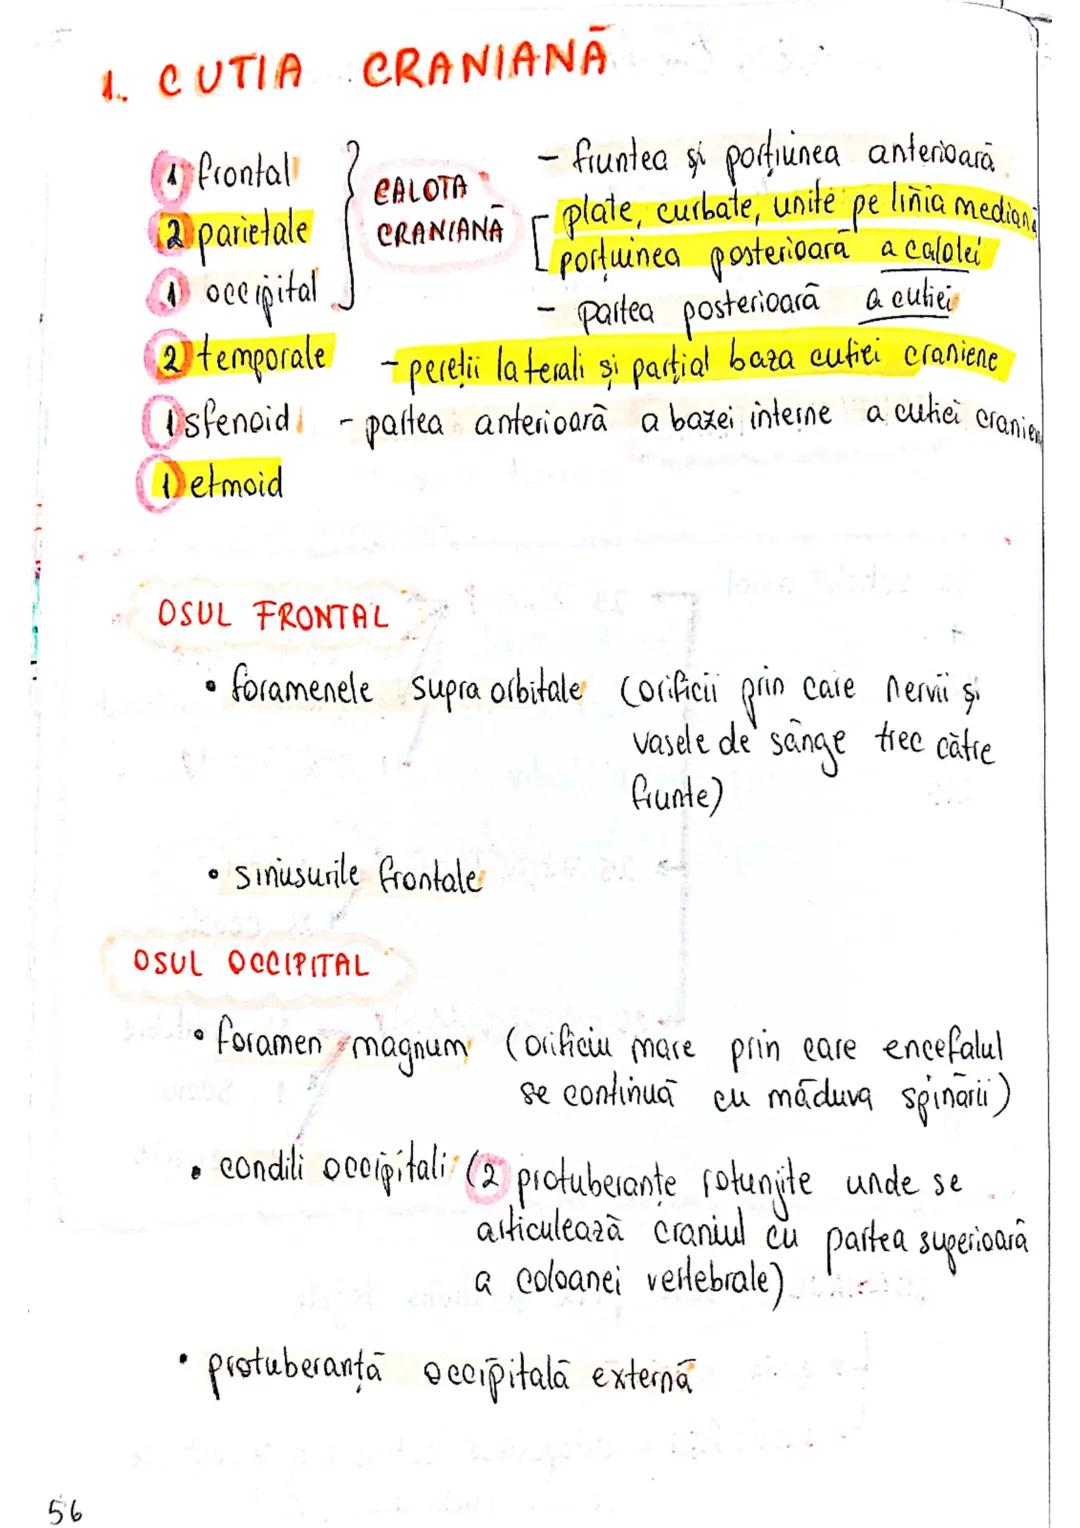 1. CUTIA CRANIANĂ
1 frontal
2 parietale
1 occipital
CALOTA
CRANIANĂ
- fruntea și porțiunea anterioară
plate, curbate, unite pe linia mediană
portuinea posterioară a calotei
- partea posterioară a cutiei
2 temporale - pereții laterali și parțial baza cutiei craniene
1 sfenoid - partea anterioară a bazei interne a cutiei cranien
1 etmoid
OSUL FRONTAL
• foramenele supra orbitale (orificii prin care nervii și
vasele de sânge trec către
frunte)
• sinusurile frontale
OSUL OCCIPITAL
• foramen magnum (orificiu mare prin care encefalul
se continuă cu măduva spinării)
• condili occipitali (2 protuberanțe rotunjite unde se
articulează craniul cu partea superioară
a coloanei vertebrale)
• protuberanță occipitală externă
56